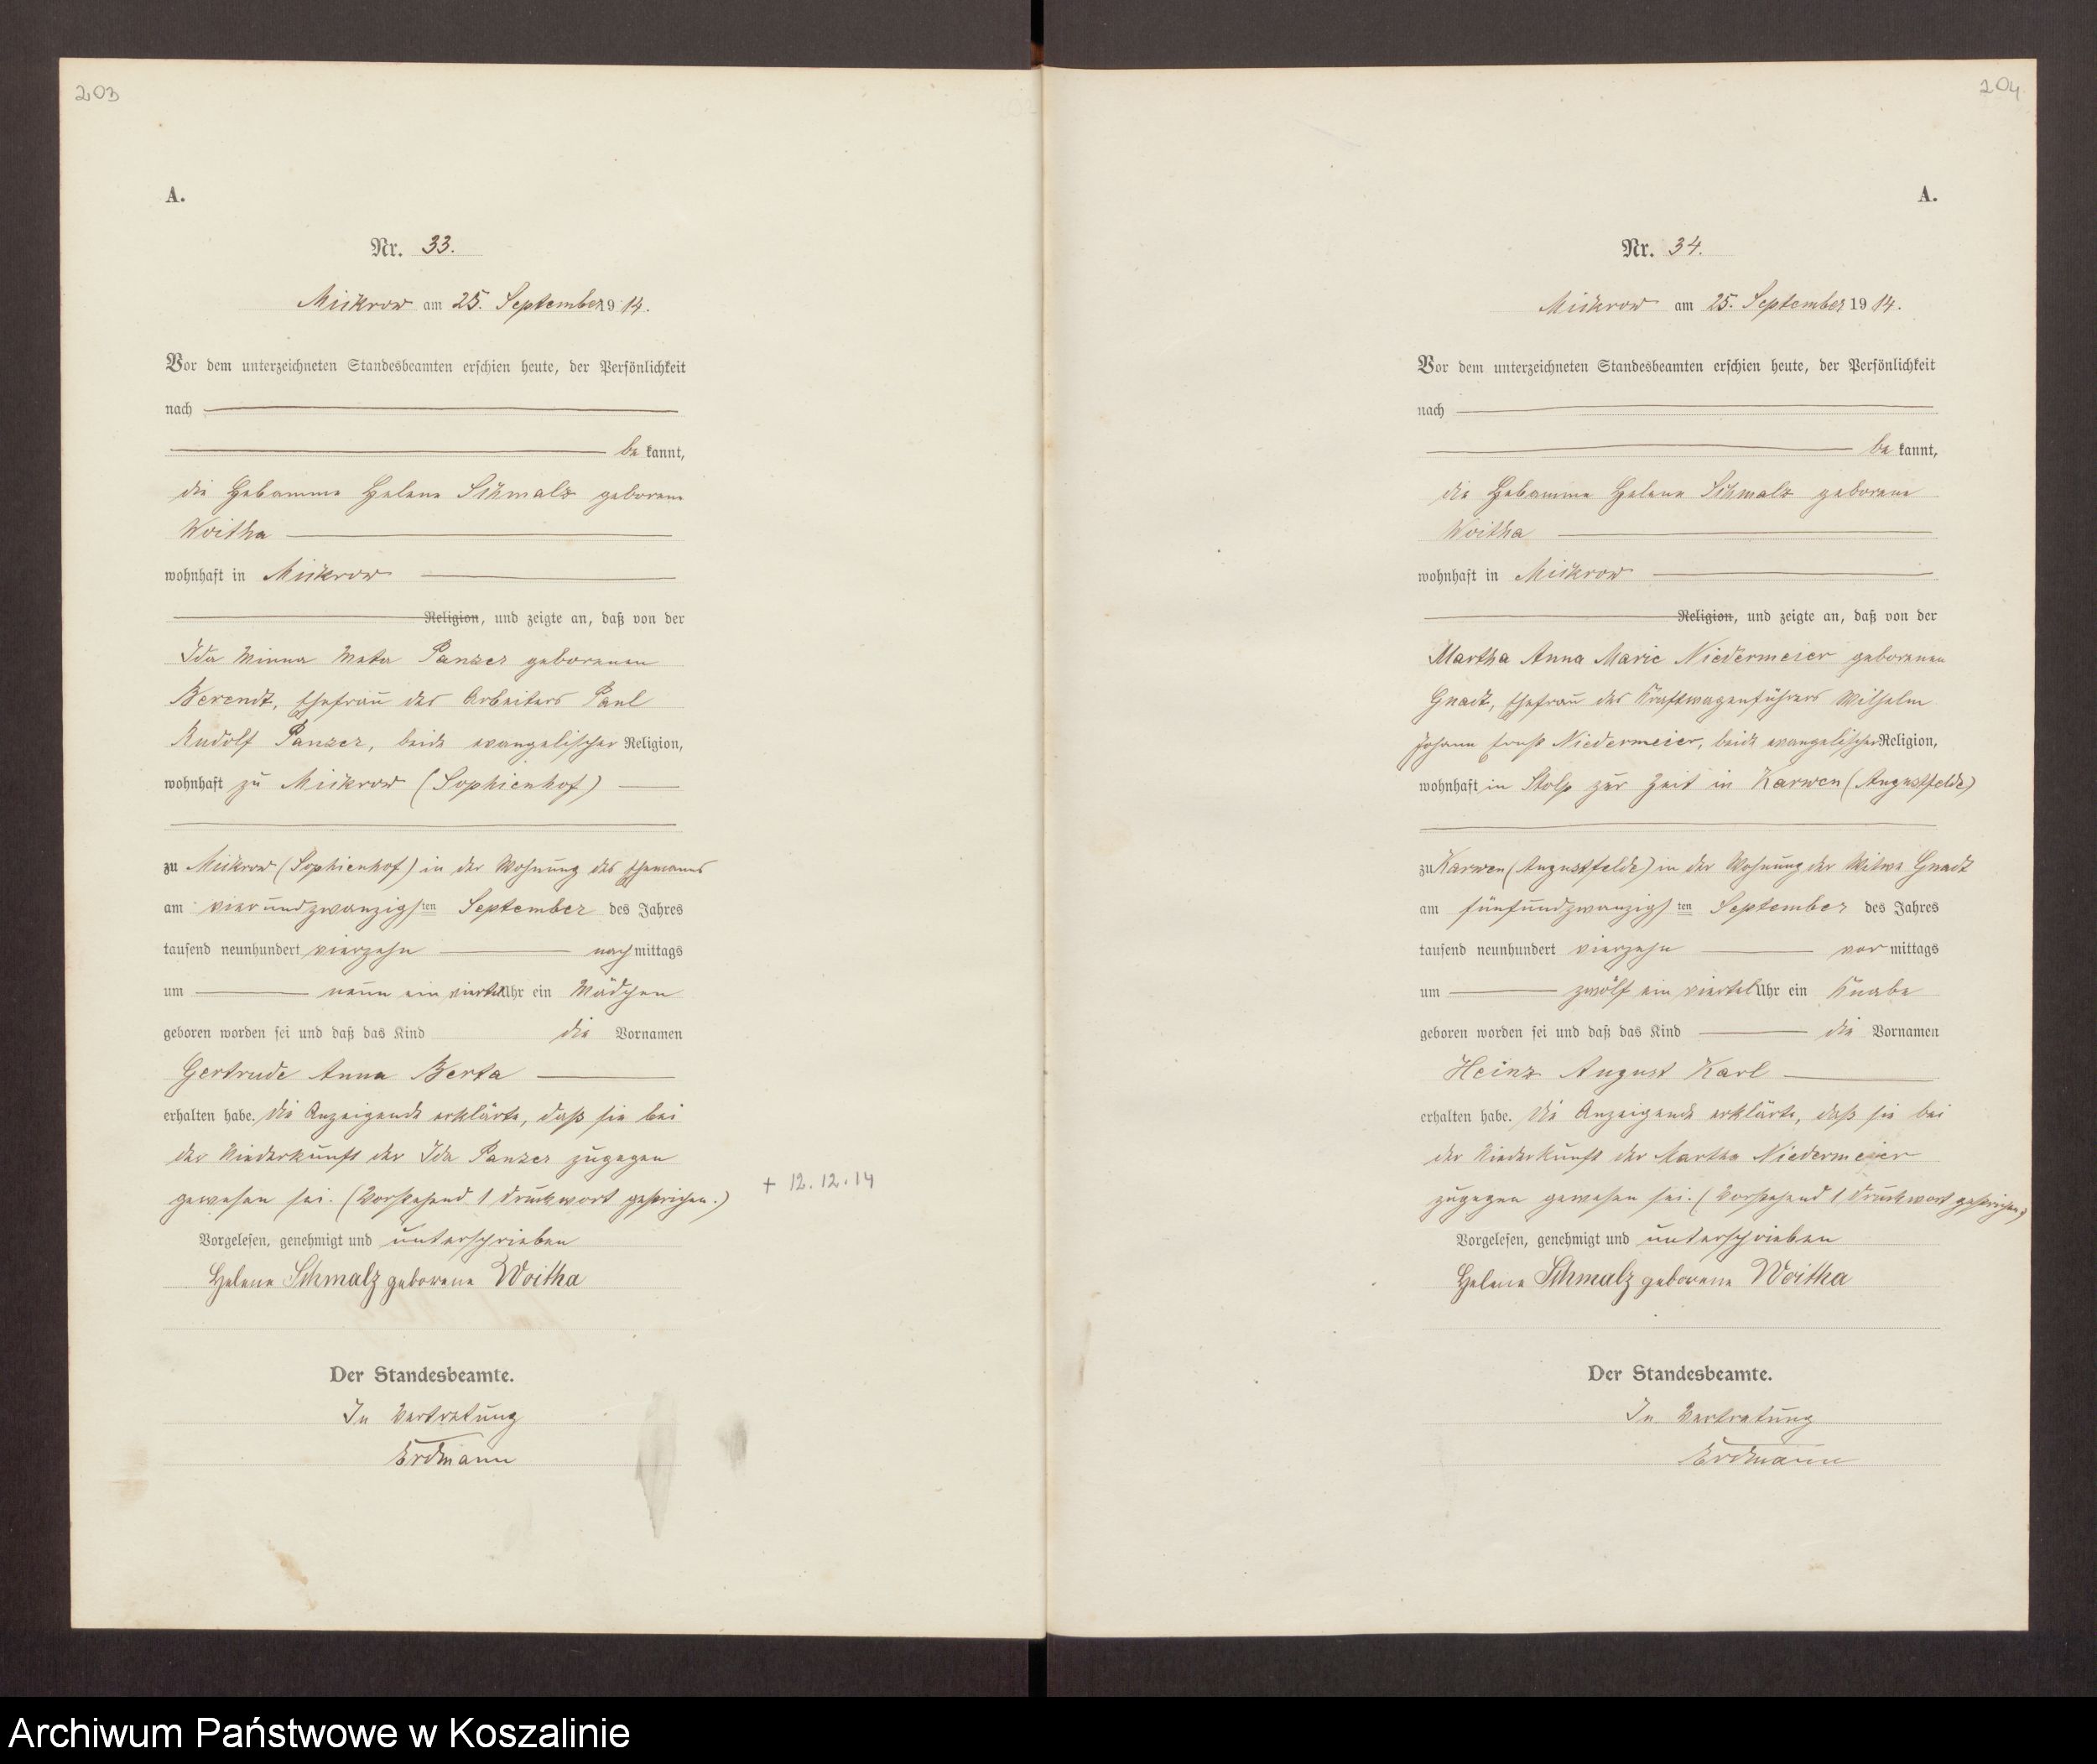 203
A.
Nr. 33.
Mickrow am 25. September 1914.
Vor dem unterzeichneten Standesbeamten erschien heute, der Persönlichkeit
nach
be kannt,
die Hebamme Helene Schmalz geborene
Woitha
wohnhaft in Mickrow
Religion, und zeigte an, daß von der
Ida Minna Meta Panzer geborenen
Berendt, Ehefrau des Arbeiters Paul
Rudolf Panzer, beide evangelischer Religion,
wohnhaft zu Mickrow (Sophienhof)
zu Mickrow (Sophienhof) in der Wohnung des Ehemanns
am vierundzwanzigsten September des Jahres
tausend neunhundert vierzehn nachmittags
um neun ein viertel Uhr ein Mädchen
geboren worden sei und daß das Kind die Vornamen
Gertrude Anna Berta
erhalten habe. Die Anzeigende erklärte, daß sie bei
der Niederkunft der Ida Panzer zugegen
gewesen sei. (Vorstehend 1 Druckwort gestrichen.)
+ 12.12.14
Vorgelesen, genehmigt und unterschrieben
Helene Schmalz geborene Woitha
Der Standesbeamte.
In Vertretung
Erdmann
204
A.
Nr. 34.
Mickrow am 25. September 1914.
Vor dem unterzeichneten Standesbeamten erschien heute, der Persönlichkeit
nach
be kannt,
die Hebamme Helene Schmalz geborene
Woitha
wohnhaft in Mickrow
Religion, und zeigte an, daß von der
Martha Anna Marie Niedermeier geborenen
Gnadt, Ehefrau des Kraftwagenführers Wilhelm
Johann Ernst Niedermeier, beide evangelischer Religion,
wohnhaft in Stolp zur Zeit in Karwen (Augustfelde)
zu Karwen (Augustfelde) in der Wohnung der Witwe Gnadt
am fünfundzwanzigsten September des Jahres
tausend neunhundert vierzehn vormittags
um zwölf ein viertel Uhr ein Knabe
geboren worden sei und daß das Kind die Vornamen
Heinz August Karl
erhalten habe. Die Anzeigende erklärte, daß sie bei
der Niederkunft der Martha Niedermeier
zugegen gewesen sei. (Vorstehend 1 Druckwort gestrichen.)
Vorgelesen, genehmigt und unterschrieben
Helene Schmalz geborene Woitha
Der Standesbeamte.
In Vertretung
Erdmann
Archiwum Państwowe w Koszalinie